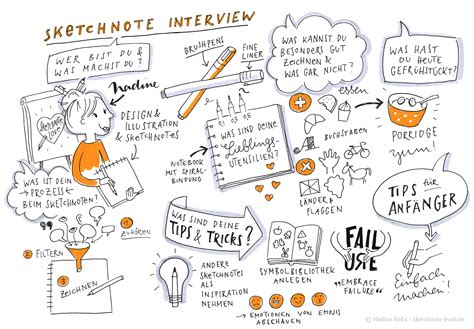 SKETCHNOTE INTERVIEW
WER BIST DU &
WAS MACHST DU?
Nadine
DESIGN &
ILLUSTRATION
& SKETCHNOTES
sketchnote
love
BRUSHPENS
FINE
LINER
0,1 0,3 0,5
WAS SIND DEINE
Lieblings-
UTENSILIEN?
NOTEBOOK
MIT SPIRAL-
BINDUNG
WAS KANNST DU
BESONDERS GUT
ZEICHNEN &
WAS GAR NICHT?
essen
BUCHSTABEN
LÄNDER &
FLAGGEN
WAS HAST
DU HEUTE
GEFRÜHSTÜCKT?
PORRIDGE
yum!
WAS IST DEIN
PROZESS
BEIM SKETCHNOTEN?
1
ZUHÖREN
2 FILTERN
3
ZEICHNEN
WAS SIND DEINE
TIPS &
TRICKS?
ANDERE
SKETCHNOTES
ALS
INSPIRATION
NEHMEN
SYMBOLBIBLIOTHEK
ANLEGEN
EMOTIONEN VON EMOJIS
ABSCHAUEN
FAIL
URE
"EMBRACE
FAILURE"
TIPS für
ANFÄNGER
Einfach
machen!
© Nadine Roßa / sketchnote-buch.de